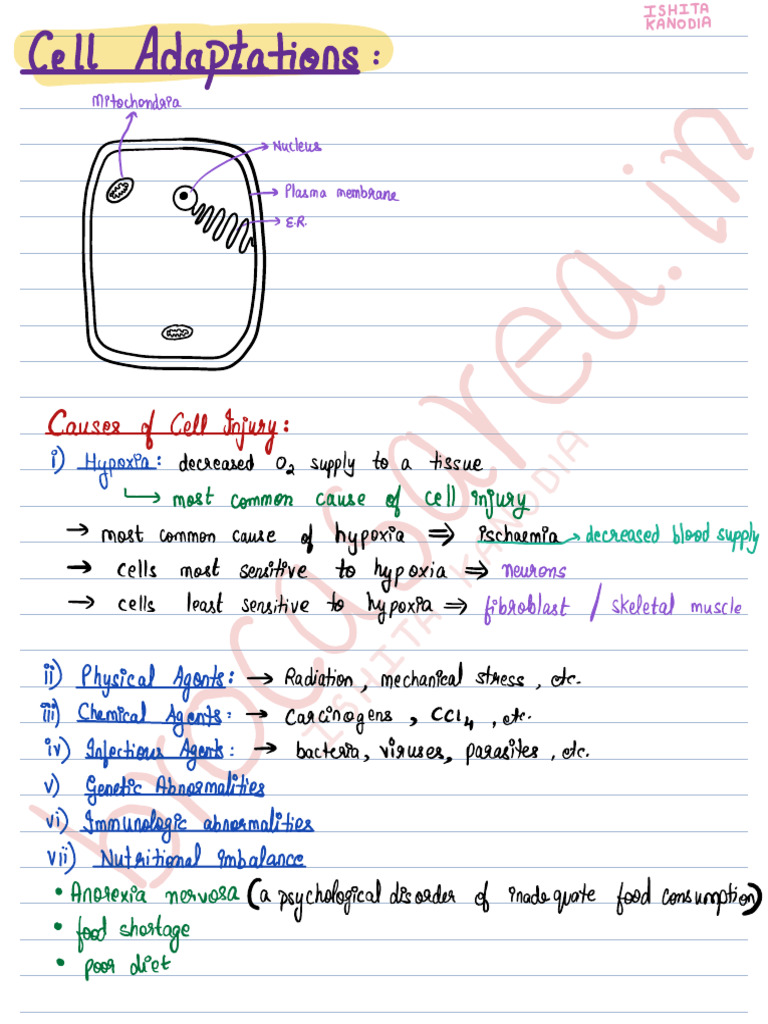 ISHITA
KANODIA
Cell Adaptations:
Mitochondria
Nucleus
Plasma membrane
E.R.
Causes of Cell Injury:
i) Hypoxia: decreased O2 supply to a tissue
↳ most common cause of cell injury
→ most common cause of hypoxia ⇒ ischaemia → decreased blood supply
→ cells most sensitive to hypoxia ⇒ neurons
→ cells least sensitive to hypoxia ⇒ fibroblast / skeletal muscle
ii) Physical Agents: → Radiation, mechanical stress, etc.
iii) Chemical Agents: → Carcinogens, CCl4, etc.
iv) Infectious Agents: → bacteria, viruses, parasites, etc.
v) Genetic Abnormalities
vi) Immunologic abnormalities
vii) Nutritional imbalance
• Anorexia nervosa (a psychological disorder of inadequate food consumption)
• food shortage
• poor diet
brocasarea.in
ISHITA KANODIA